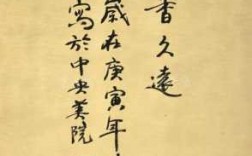 香久遠
歲在庚寅年
寫於中央美院